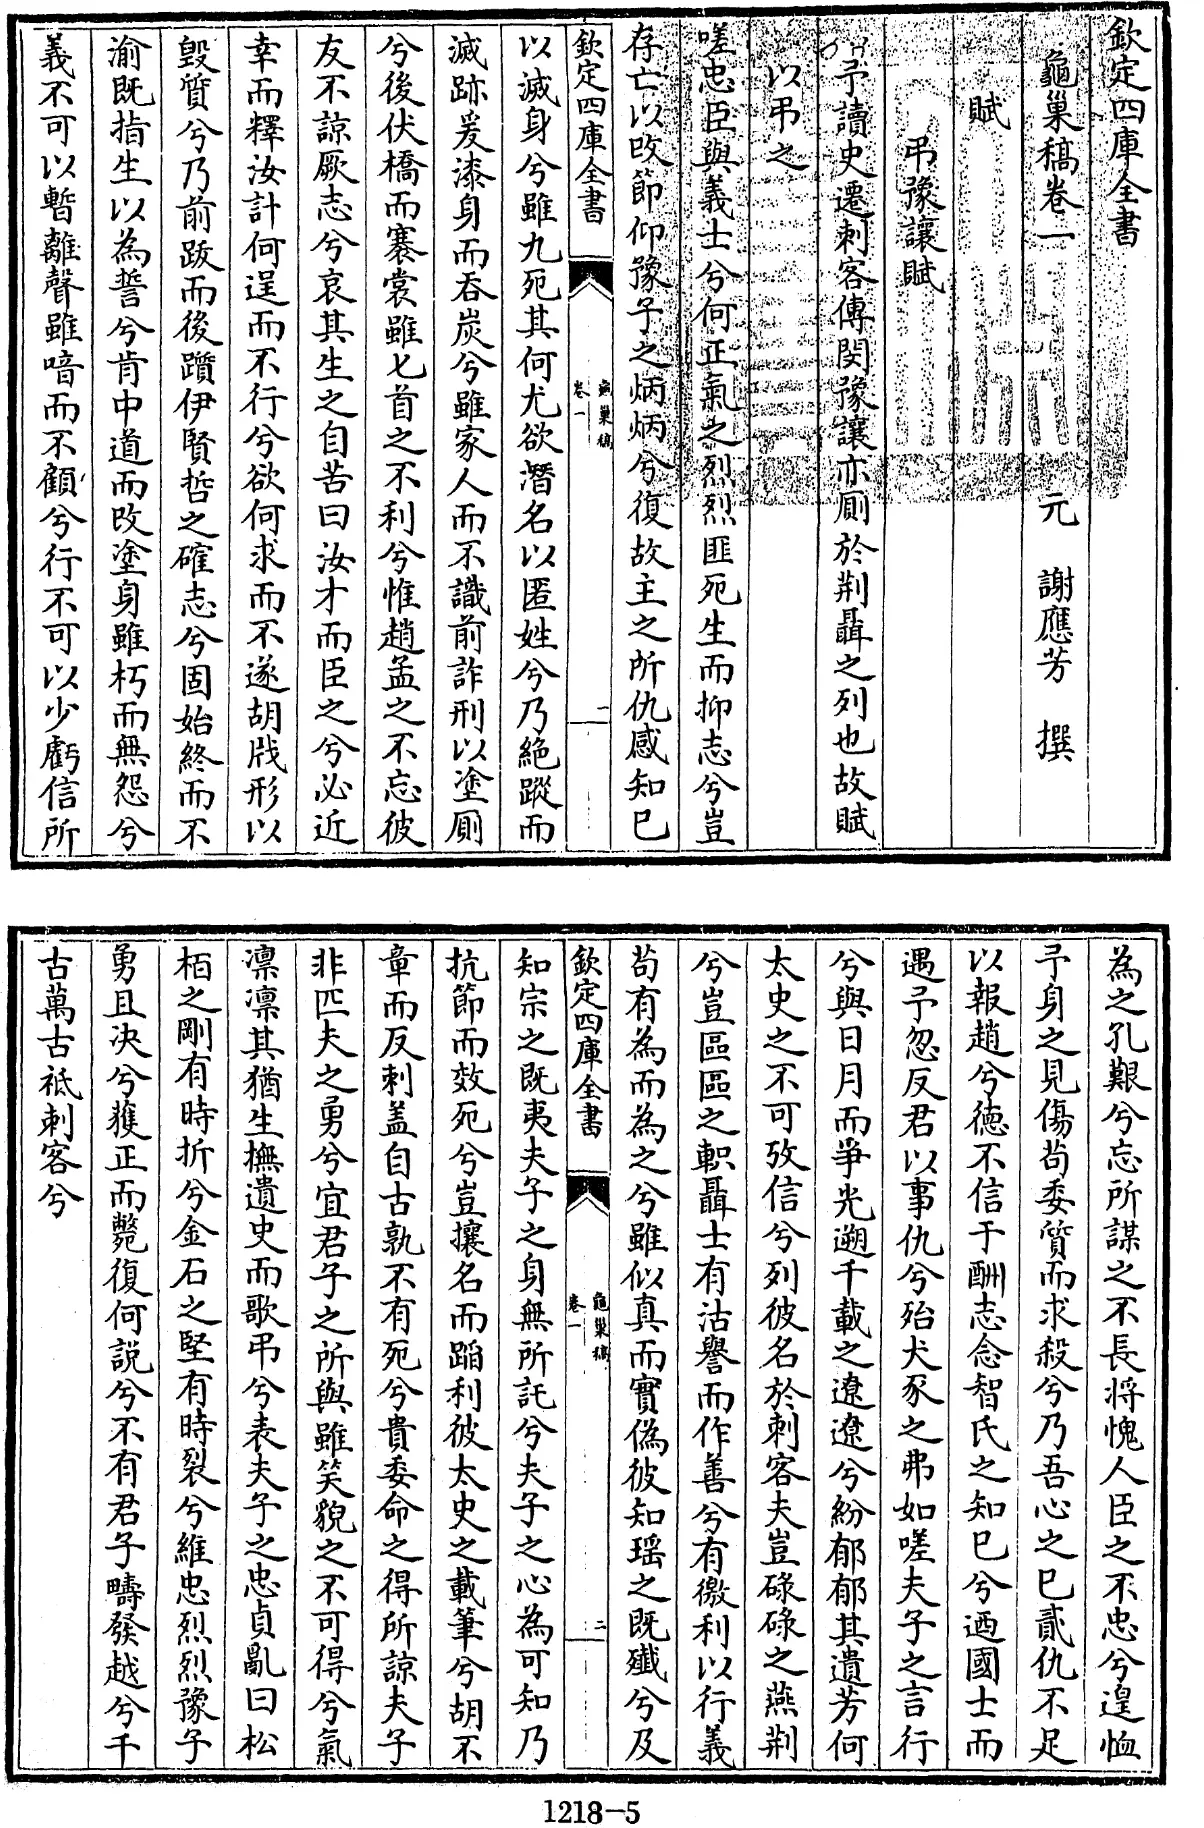 欽定四庫全書
龜巢稿卷一 元 謝應芳 撰
賦
弔豫讓賦
予讀史遷刺客傳閔豫讓亦厠於荆聶之列也故賦
以弔之
嗟忠臣與義士兮何正氣之烈烈匪死生而抑志兮豈
存亡以改節仰豫子之炳炳兮復故主之所仇感知已
欽定四庫全書 龜巢稿 卷一 一
以滅身兮雖九死其何尤欲潛名以匿姓兮乃絶蹤而
滅跡爰漆身而吞炭兮雖家人而不識前詐刑以塗厠
兮後伏橋而褰裳雖匕首之不利兮惟趙孟之不忘彼
友不諒厥志兮哀其生之自苦曰汝才而臣之兮必近
幸而釋汝計何逞而不行兮欲何求而不遂胡戕形以
毁質兮乃前跋而後躓伊賢哲之確志兮固始終而不
渝既指生以為誓兮肯中道而改塗身雖朽而無怨兮
義不可以暫離聲雖喑而不顧兮行不可以少虧信所
為之孔艱兮忘所謀之不長將愧人臣之不忠兮遑恤
予身之見傷茍委質而求殺兮乃吾心之已貳仇不足
以報趙兮德不信于酬志念智氏之知已兮迺國士而
遇予忽反君以事仇兮殆犬豕之弗如嗟夫子之言行
兮與日月而爭光遡千載之遼遼兮紛郁郁其遺芳何
太史之不可攷信兮列彼名於刺客夫豈碌碌之燕荆
兮豈區區之軹聶士有沽譽而作善兮有徼利以行義
茍有為而為之兮雖似真而實偽彼知瑶之既殲兮及
欽定四庫全書 龜巢稿 卷一 二
知宗之既夷夫子之身無所託兮夫子之心為可知乃
抗節而效死兮豈攘名而蹈利彼太史之載筆兮胡不
章而反刺盖自古孰不有死兮貴委命之得所諒夫子
非匹夫之勇兮宜君子之所與雖笑貌之不可得兮氣
凛凛其猶生撫遺史而歌弔兮表夫子之忠貞亂曰松
栢之剛有時折兮金石之堅有時裂兮維忠烈烈豫子
勇且决兮獲正而斃復何説兮不有君子疇發越兮千
古萬古祗刺客兮
1218-5